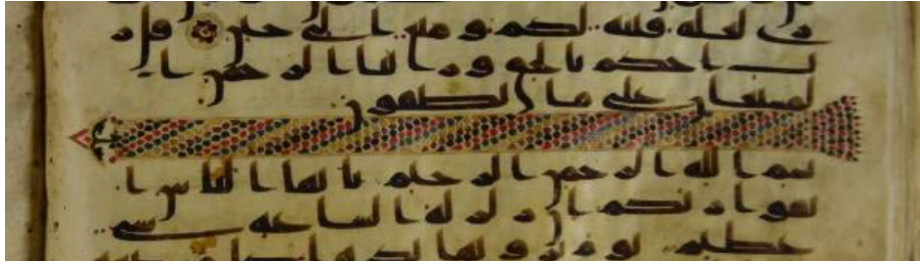 ى لعله فتنه لكم و متع الى حين قل ر
ب احكم بالحق و ربنا الرحمن ا
لمستعان على ما تصفون
بسم الله الرحمن الرحيم يايها الناس ا
تقوا ربكم ان زلزله الساعه شى
عظيم يوم ترونها